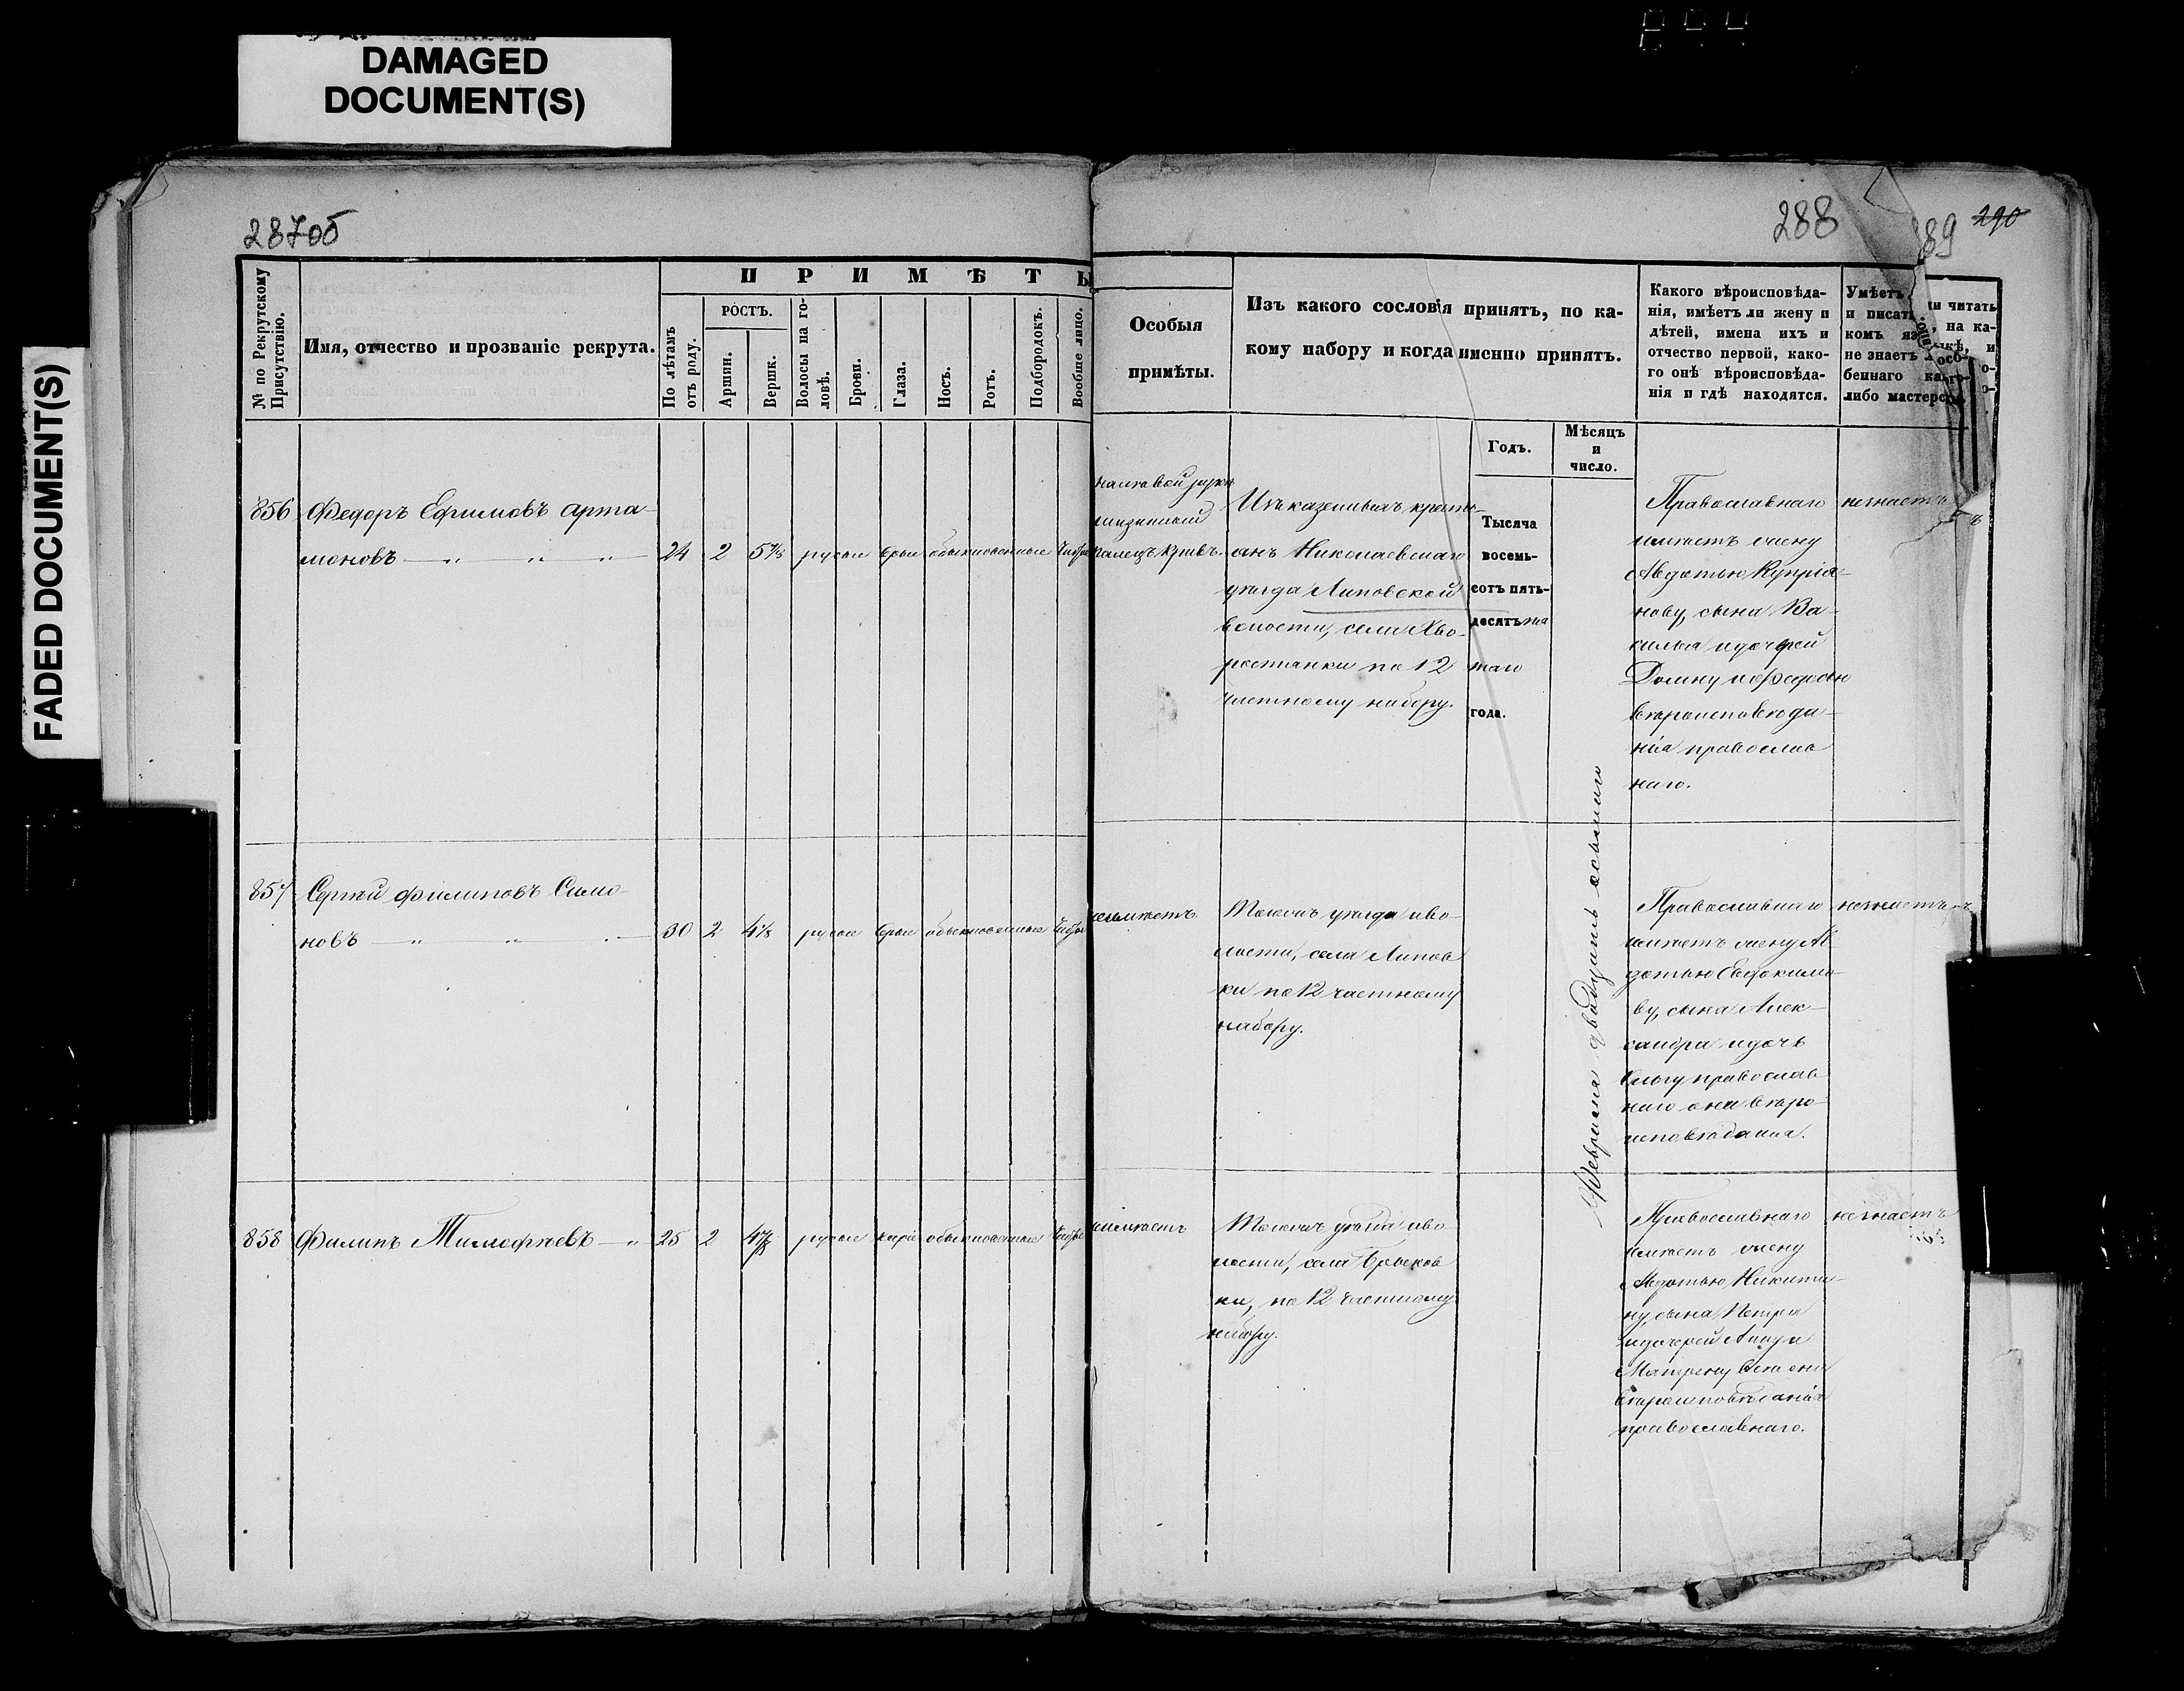 DAMAGED
DOCUMENT(S)
FADED DOCUMENT(S)
287об
288
89
290
№ по Рекрутскому
Присутствію.
Имя, отчество и прозваніе рекрута.
ПРИМѢТЫ
По лѣтамъ
отъ роду.
РОСТЪ.
Аршин.
Вершк.
Волосы на го-
ловѣ.
Брови.
Глаза.
Носъ.
Ротъ.
Подбородокъ.
Вообще лицо.
Особыя
примѣты.
Изъ какого сословія принятъ, по ка-
кому набору и когда именно принятъ.
Годъ.
Мѣсяцъ
и
число.
Какого вѣроисповѣда-
нія, имѣетъ ли жену и
дѣтей, имена ихъ и
отчество первой, како-
го онѣ вѣроисповѣда-
нія и гдѣ находятся.
Умѣетъ ли читать
и писать, на ка-
комъ языкѣ, и
не знаетъ осо-
беннаго како-
либо мастерст
856
Федоръ Ефимовъ Арта-
моновъ
24 2 5 русые обыкновенные
на лѣвой руки
мизинный
палецъ кривъ.
Изъ казенныхъ кресть-
анъ Николаевскаго
уѣзда Липовской
волости, села Хво-
ростянки по 12
частному набору.
Тысяча
восемь-
сотъ пять-
десятъ пя
таго
года.
Февраля двадцать осьмаго
Православнаго
имѣетъ жену
Авдотью Купріа-
нову, сына Ва-
силья и дочерей
Домну и Федосью
вѣроисповѣда-
нія православ
наго.
незнаетъ
857
Сергѣй Филиповъ Симо-
новъ
30 2 4⅛ русые обыкновенные
неимѣетъ
Тѣхъ же уѣзда и во-
лости, села Липов
ки по 12 частному
набору.
Православнаго
имѣетъ жену Ав-
дотью Евдокимо-
ву, сына Алек-
сандра и дочь
Ольгу православ
наго они вѣро-
исповѣданія.
незнаетъ
858
Филипъ Тимофѣевъ
25 2 4⅞ русые каріе обыкновенные
неимѣетъ
Тѣхъ же уѣзда и во
лости, села Брыков
ки, по 12 частному
набору.
Православнаго
имѣетъ жену
Авдотью Никити-
ну, сына Петра
и дочерей Анну и
Матрену всѣ они
вѣроисповѣданія
православнаго.
незнаетъ